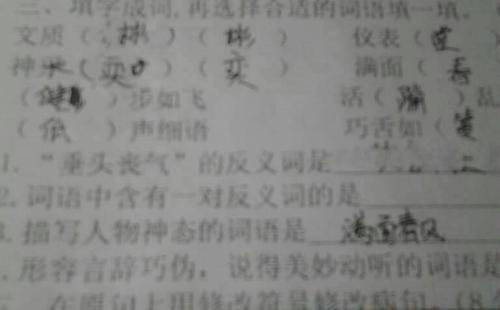 三、填字成词，再选择合适的词语填一填。
文质（彬）（彬） 仪表（
神采（奕）（奕） 满面（春
（健）步如飞 活（蹦）乱
（低）声细语 巧舌如（簧
1. “垂头丧气”的反义词是
2. 词语中含有一对反义词的是
3. 描写人物神态的词语是 满面春风
. 形容言辞巧伪，说得美妙动听的词语是
在原句上用修改符号修改病句。（8